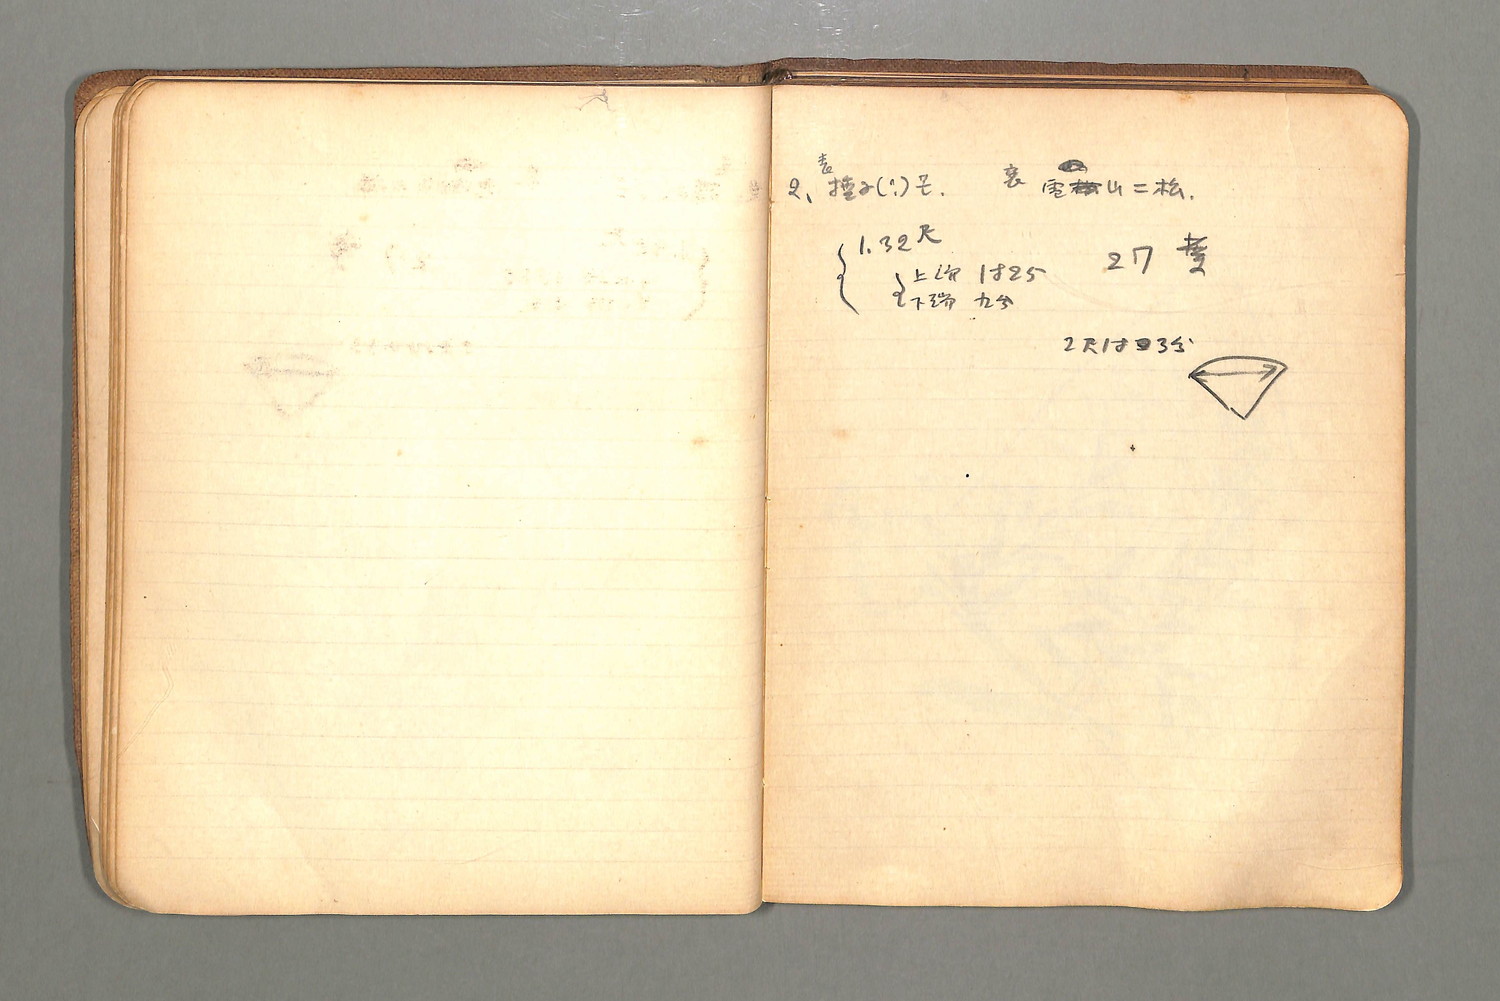 2、表
裏 山ニ松.
1.32尺
上端 1寸25
下端 九分
27
2尺1寸3分